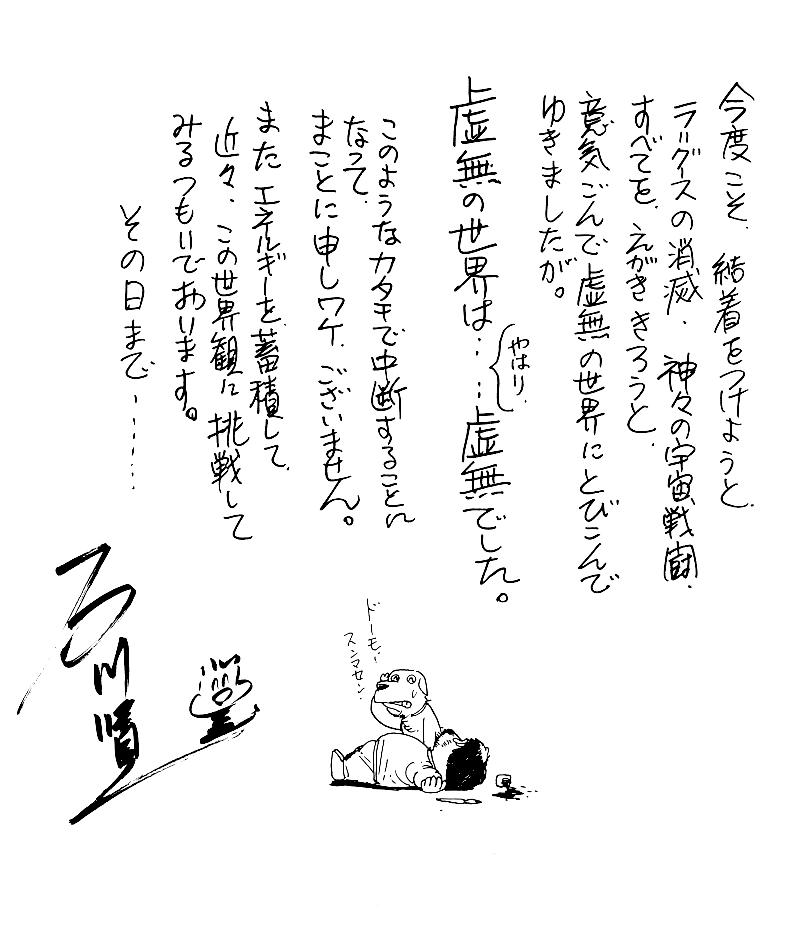 今度こそ、結着をつけようと、
ラ=グースの消滅、神々の宇宙戦闘、
すべてを、えがききろうと、
意気ごんで虚無の世界にとびこんで
ゆきましたが。
虚無の世界は‥‥虚無でした。
やはり、
このようなカタチで中断することに
なって、
まことに申しワケ、ございません。
また エネルギーを蓄積して、
近々、この世界観に挑戦して
みるつもりであります。
その日まで……
石川賢
ドーモ、
スンマセン、